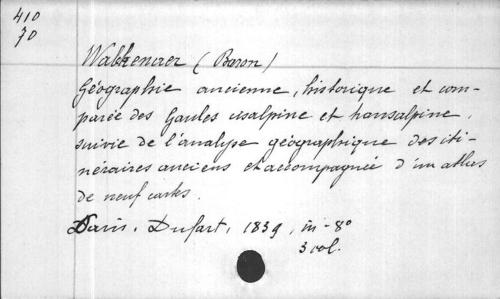 410
70
Walkenaer (Baron)
Géographie ancienne, historique et com-
parée des Gaules cisalpine et transalpine,
suivie de l'analyse géographique des iti-
néraires anciens et accompagnée d'un atlas
de neuf cartes.
Paris. Dufart, 1839, in-8o
3 vol.